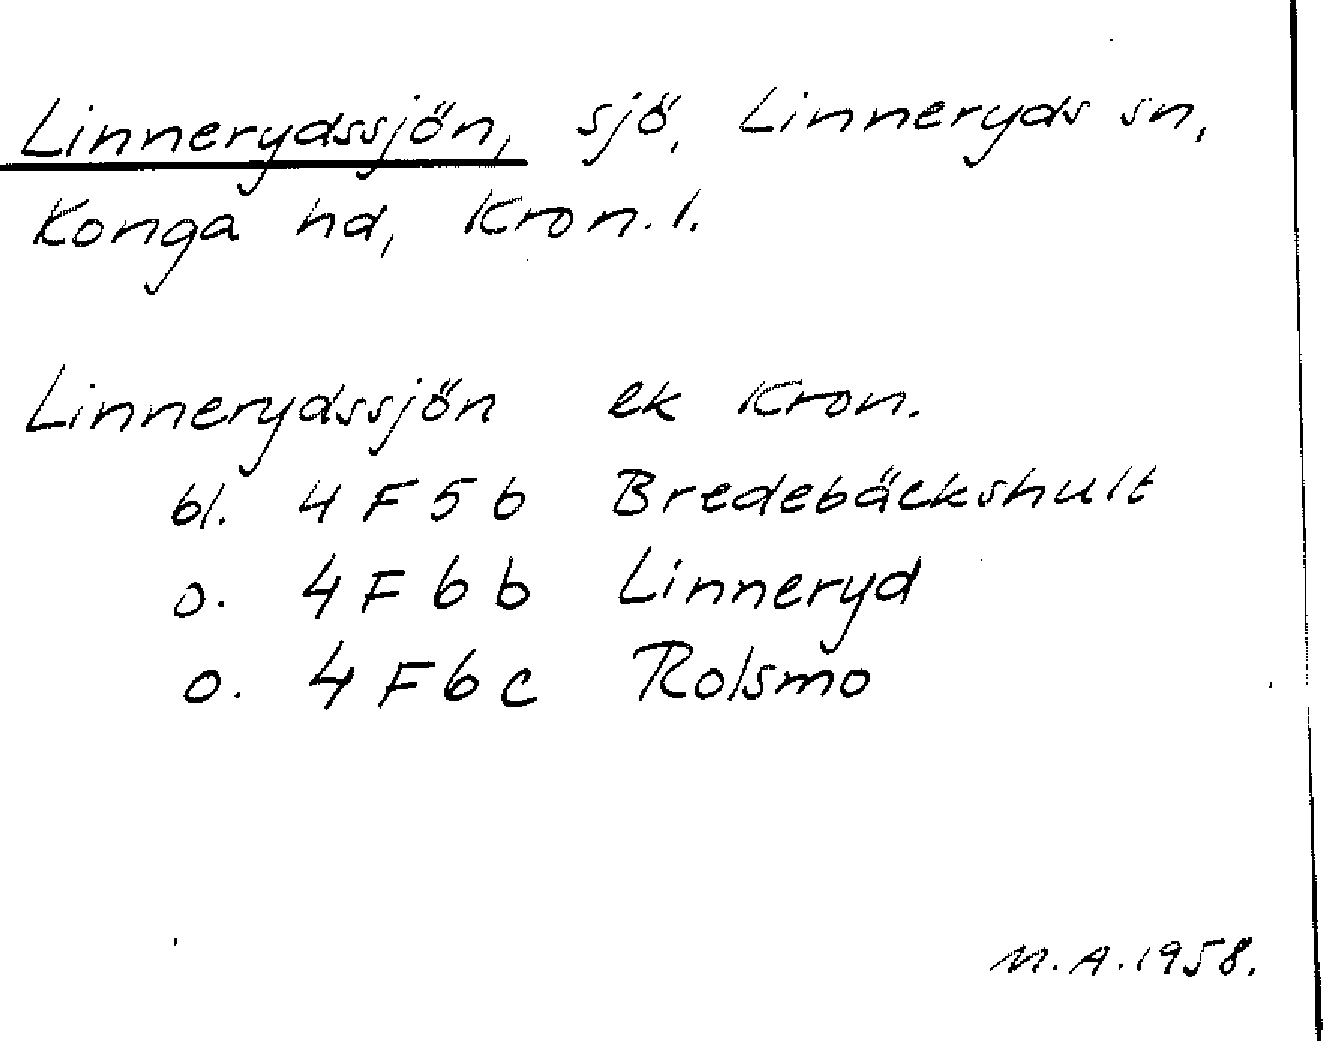 Linnerydssjön, sjö, Linneryds sn,
Konga hd, Kron. l.
Linnerydssjön ek Kron.
bl. 4 F 5 b Bredebäckshult
o. 4 F 6 b Linneryd
o. 4 F 6 c Rolsmo
M.A. 1958.